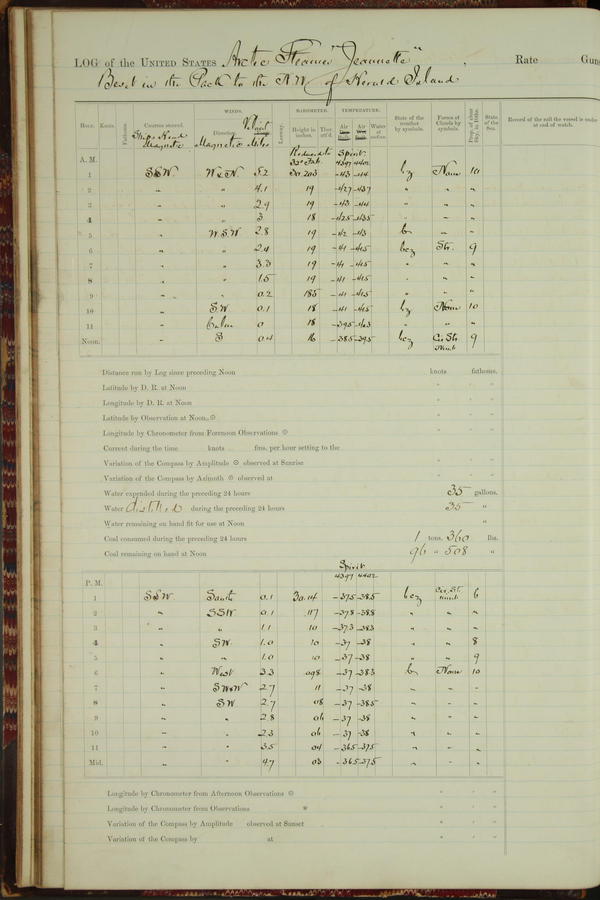 LOG of the UNITED STATES Arctic Steamer "Jeannette", Rate Guns
Beset in the Pack to the N.W. of Herald Island
HOUR. Knots. Fathoms. Courses steered. WINDS. Leeway. BAROMETER. TEMPERATURE. State of the weather by symbols. Forms of Clouds by symbols. Prop. of clear Sky, in 10ths. State of the Sea. Record of the sail the vessel is under at end of watch.
Ship's Head Magnetic Direction. Magnetic Velocity Miles Height in Ther. att'd. Air Air Water at surface.
A. M. Reduced to 32° Fah. Spirit 4397 4402
1 SSW W x N 5.2 30.203 -43 -44 bz None 10
2 " " 4.1 19 -42.7 -43.7 " " "
3 " " 2.9 19 -43 -44 " " "
4 " " 3 18 -42.5 -43.5 " " "
5 " WSW 2.8 19 -42 -43 b " "
6 " " 2.4 19 -41 -41.5 bcz Str. 9
7 " " 3.3 19 -41 -41.5 " " "
8 " " 1.5 19 -41 -41.5 " " "
9 " " 0.2 185 -41 -41.5 " " "
10 " SW 0.1 18 -41 -41.5 bz None 10
11 " Calm 0 18 -39.5 -40.3 " " "
Noon. " S 0.4 16 -38.5 -39.5 bcz Ci. St. 9
Distance run by Log since preceding Noon knots fathoms.
Latitude by D. R. at Noon " " "
Longitude by D. R. at Noon " " "
Latitude by Observation at Noon " " "
Longitude by Chronometer from Forenoon Observations " " "
Current during the time knots fms. per hour setting to the
Variation of the Compass by Amplitude observed at Sunrise " " "
Variation of the Compass by Azimuth observed at " " "
Water expended during the preceding 24 hours 35 gallons.
Water distilled during the preceding 24 hours 35 "
Water remaining on hand fit for use at Noon "
Coal consumed during the preceding 24 hours 1 tons. 360 lbs.
Coal remaining on hand at Noon 96 " 508 "
Spirit
P. M. 4397 4402
1 SSW South 0.1 30.14 -37.5 -38.5 bcz Cir. St. 6
2 " SSW 0.1 .117 -37.8 -38.8 " " "
3 " " 1.1 10 -37.3 -38.3 " " "
4 " SW. 1.0 10 -37 -38 " " 8
5 " " 1.0 10 -37 -38 " " 9
6 " West 3.3 098 -37 -38.3 b None 10
7 " SWxW 2.7 11 -37 -38 " " "
8 " SW 2.7 08 -37 -38.5 " " "
9 " " 2.8 06 -37 -38 " " "
10 " " 2.3 06 -37 -38 " " "
11 " " 3.5 04 -36.5 -37.5 " " "
Mid. " " 4.7 03 -36.5 -37.5 " " "
Longitude by Chronometer from Afternoon Observations " " "
Longitude by Chronometer from Observations * " " "
Variation of the Compass by Amplitude observed at Sunset " " "
Variation of the Compass by at " " "